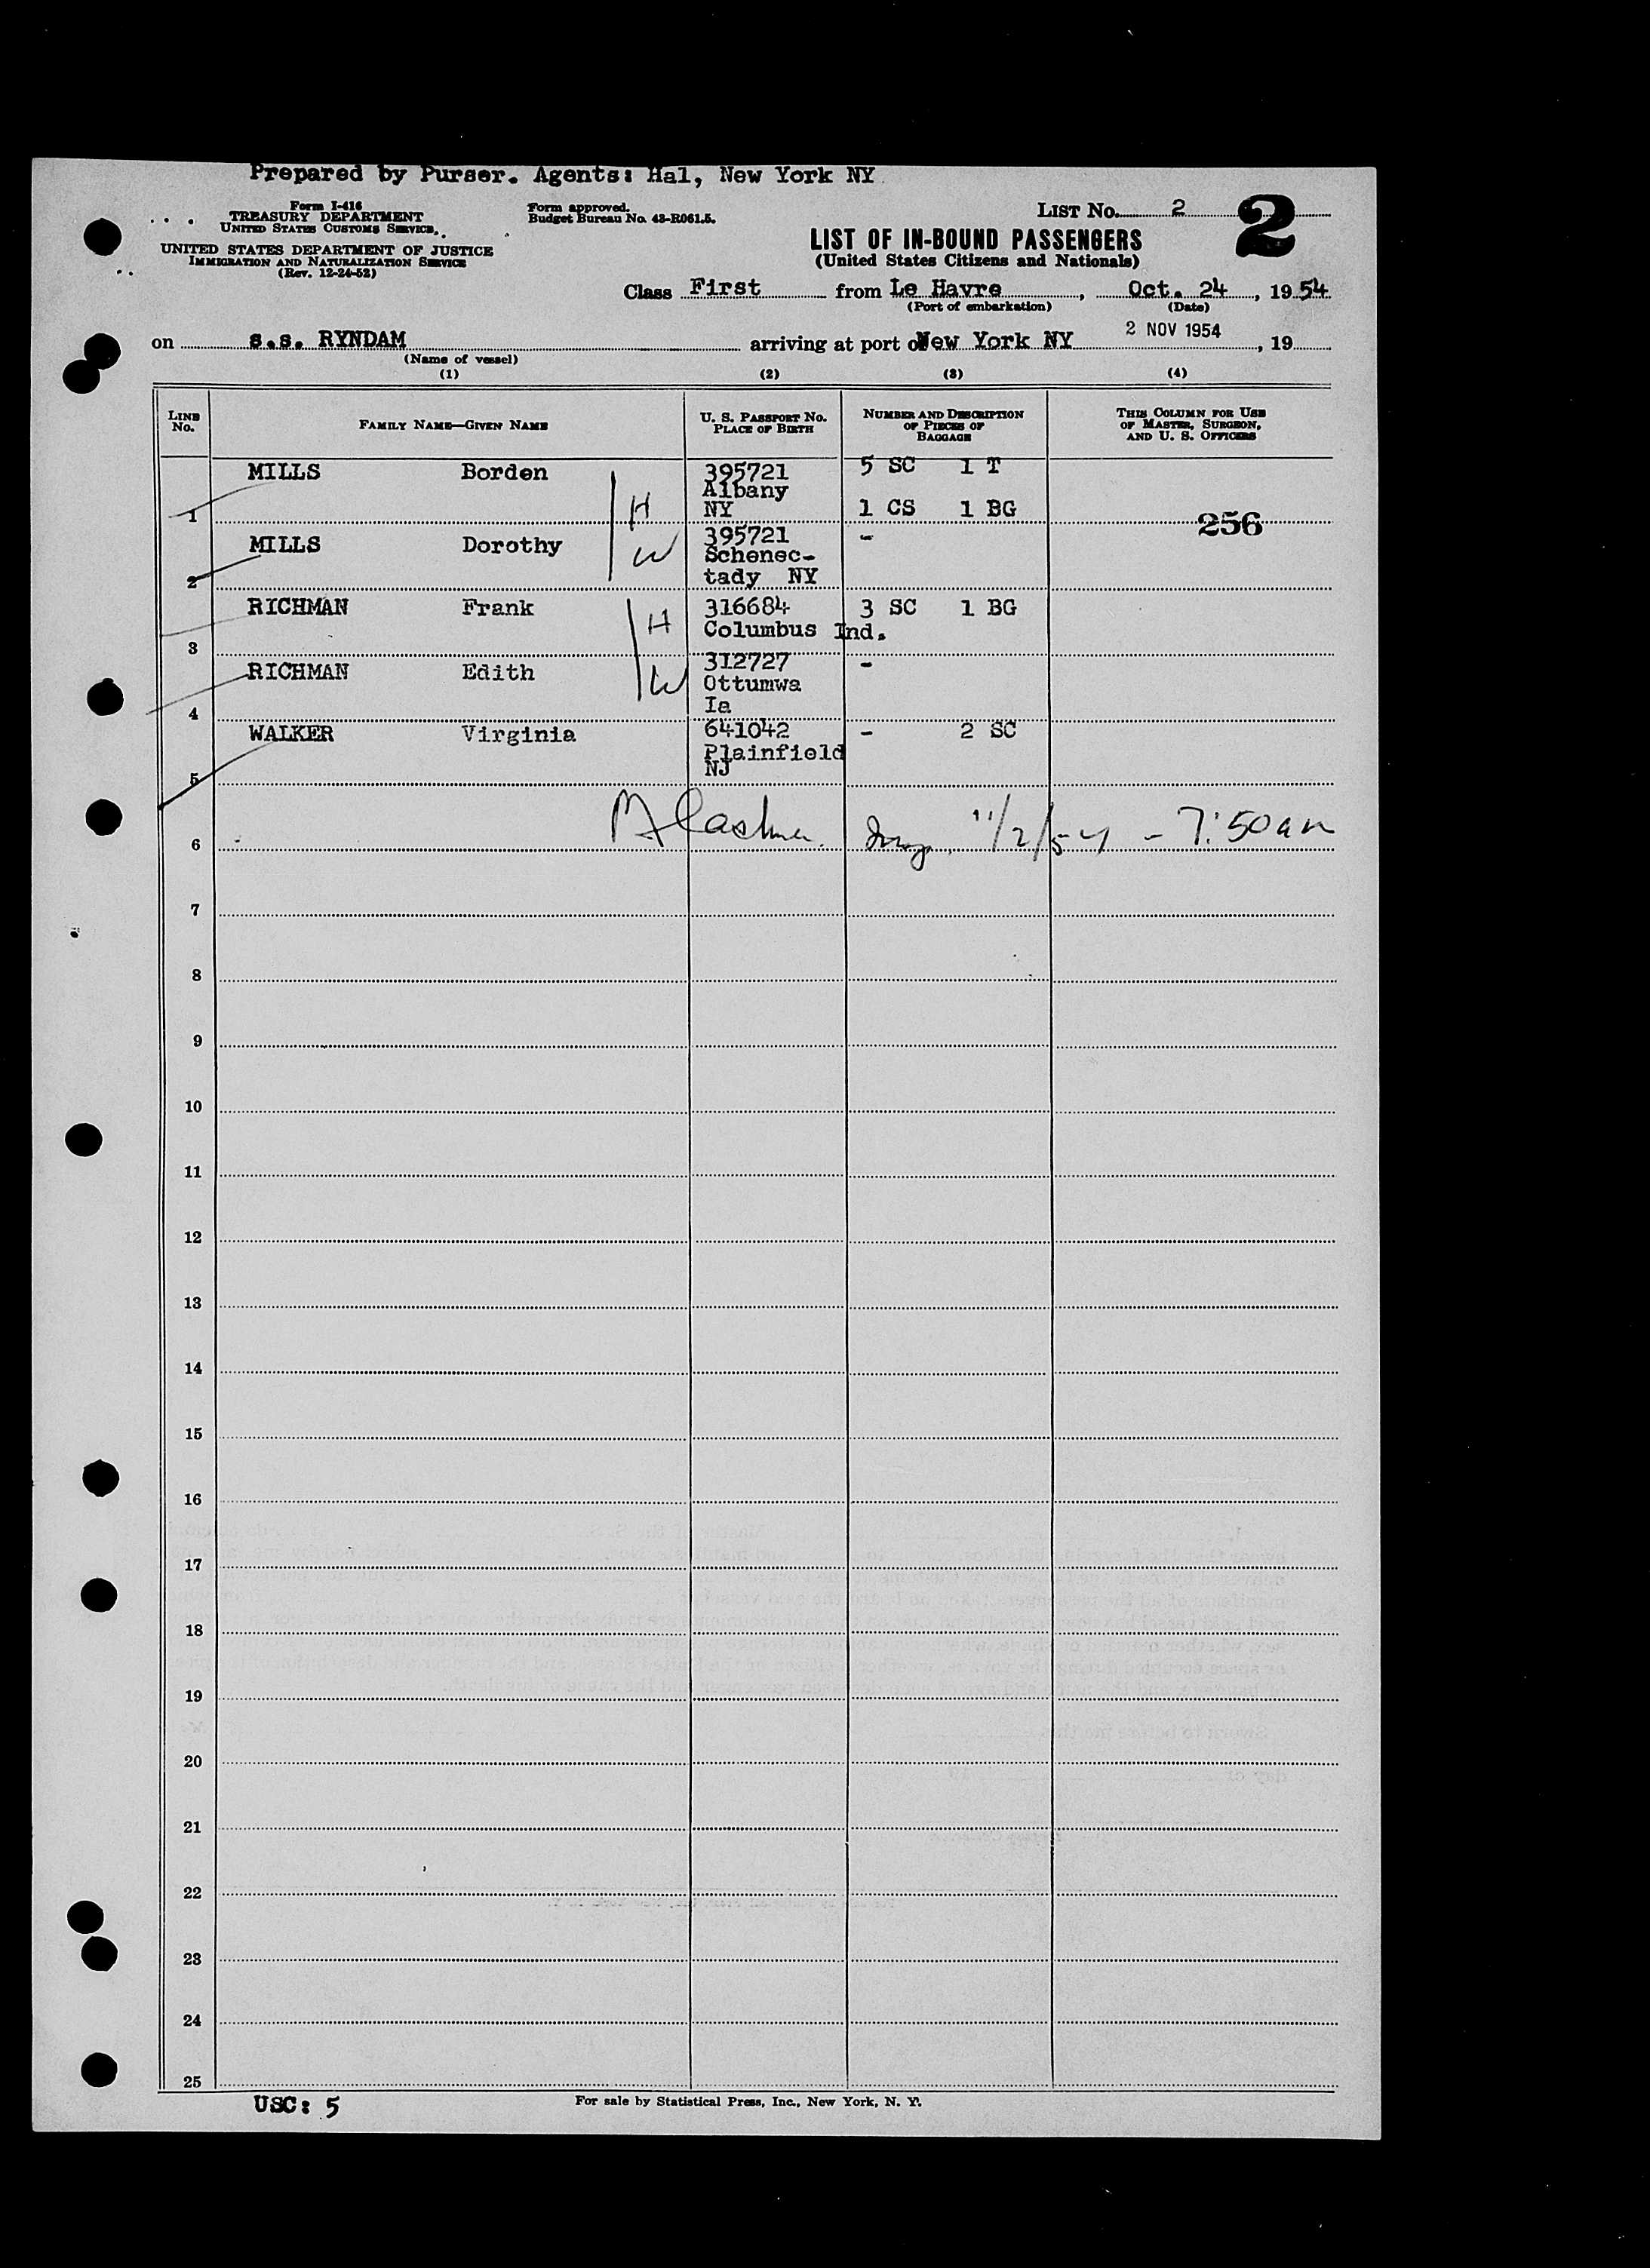 Prepared by Purser. Agents: Hal, New York NY
Form I-416
TREASURY DEPARTMENT
UNITED STATES CUSTOMS SERVICE
UNITED STATES DEPARTMENT OF JUSTICE
IMMIGRATION AND NATURALIZATION SERVICE
(Rev. 12-24-52)
Form approved.
Budget Bureau No. 43-R061.5.
LIST No. 2
2
LIST OF IN-BOUND PASSENGERS
(United States Citizens and Nationals)
Class First from Le Havre, Oct. 24, 1954
(Port of embarkation) (Date)
on s.s. RYNDAM arriving at port of New York NY 2 NOV 1954, 19
(Name of vessel)
(1) (2) (3) (4)
LINE No.
FAMILY NAME—GIVEN NAME
U. S. PASSPORT No.
PLACE OF BIRTH
NUMBER AND DESCRIPTION
OF PIECES OF
BAGGAGE
THIS COLUMN FOR USE
OF MASTER, SURGEON,
AND U. S. OFFICERS
MILLS Borden 395721 5 SC 1 T
Albany
1 H NY 1 CS 1 BG
256
MILLS Dorothy 395721 -
W Schenec-
2 tady NY
RICHMAN Frank 316684 3 SC 1 BG
H Columbus Ind.
3
RICHMAN Edith 312727 -
W Ottumwa
4 Ia
WALKER Virginia 641042 - 2 SC
Plainfield
5 NJ
6 11/2/54 - 7:50 am
7
8
9
10
11
12
13
14
15
16
17
18
19
20
21
22
23
24
25
USC: 5
For sale by Statistical Press, Inc., New York, N. Y.